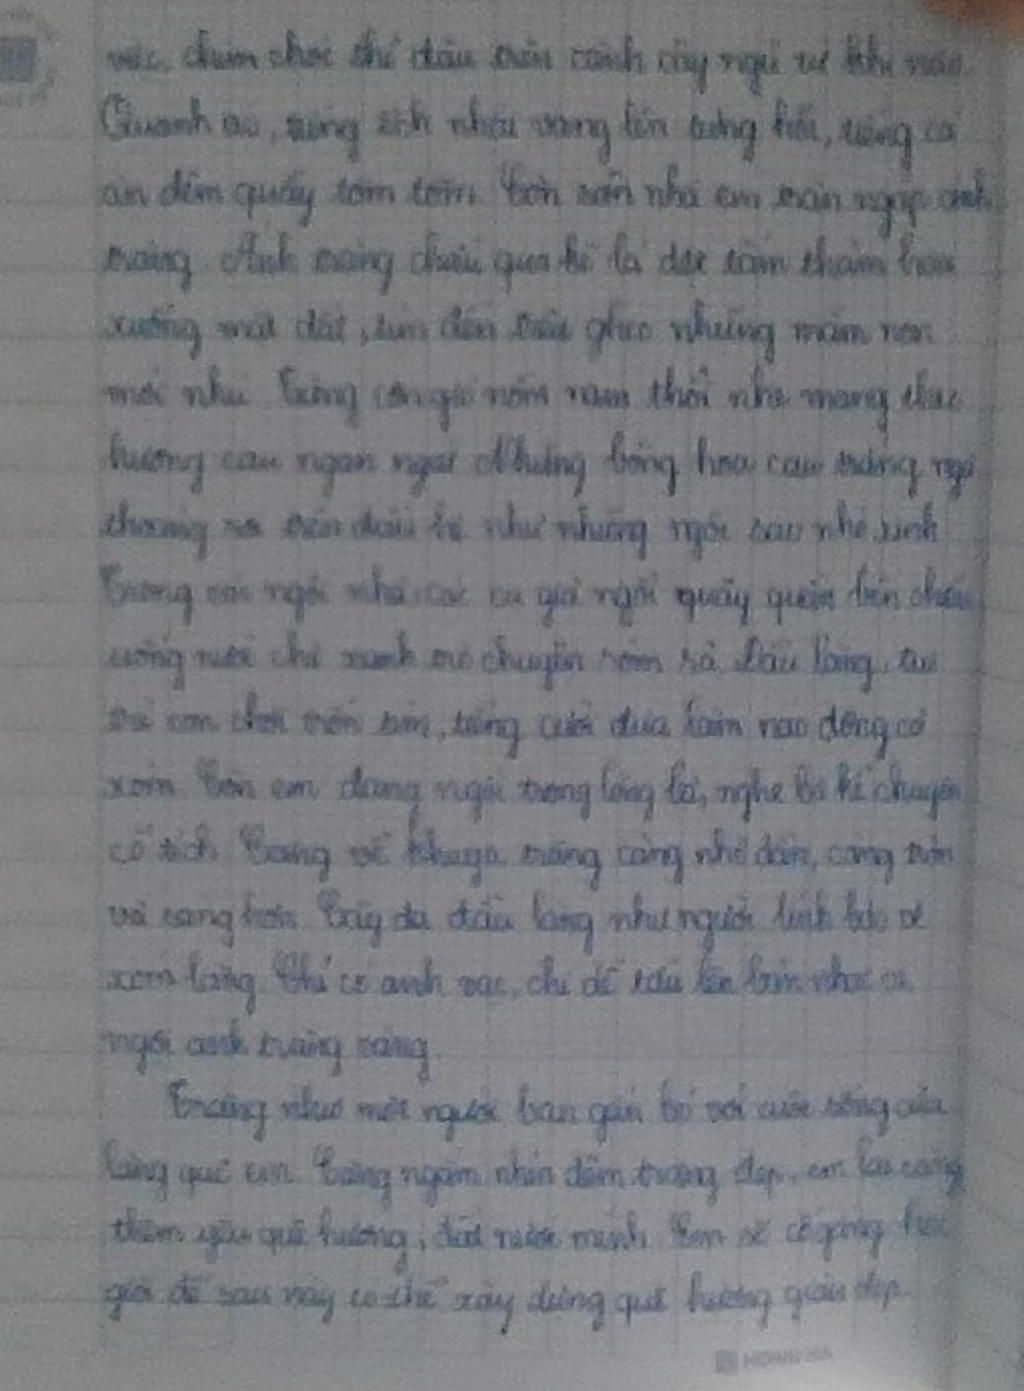 việc, chim chóc thì đậu trên cành cây ngủ từ khi nào.
Quanh ao, tiếng ếch nhái vang lên từng hồi, tiếng cá
ăn đêm quẫy tôm tốm. Còn sân nhà em tràn ngập ánh
trăng. Ánh trăng chiếu qua kẽ lá dệt tấm thảm hoa
xuống mặt đất, tìm đến trêu ghẹo những mầm non
mới nhú. Từng cơn gió nồm nam thổi nhẹ mang theo
hương cau ngan ngát. Những bông hoa cau trắng ngà
thương rơi trên đầu hè như những ngôi sao nhỏ xinh.
Trong các ngôi nhà, các cụ già ngồi quây quần bên chén
uống nước chè xanh trò chuyện rôm rả. Đầu làng, tụi
trẻ con chơi trốn tìm, tiếng cười đùa làm náo động cả
xóm. Còn em đang ngồi trong lòng bà, nghe bà kể chuyện
cổ tích. Càng về khuya, trăng càng nhỏ dần, càng tròn
và sáng hơn. Cây đa đầu làng như người lính bảo vệ
xóm làng. Chỉ có anh vạc, chị dế tấu lên bản nhạc ca
ngợi ánh trăng sáng.
Trăng như một người bạn gắn bó với cuộc sống của
làng quê em. Càng ngắm nhìn đêm trăng đẹp, em lại càng
thêm yêu quê hương, đất nước mình. Em sẽ cố gắng học
giỏi để sau này có thể xây dựng quê hương giàu đẹp.